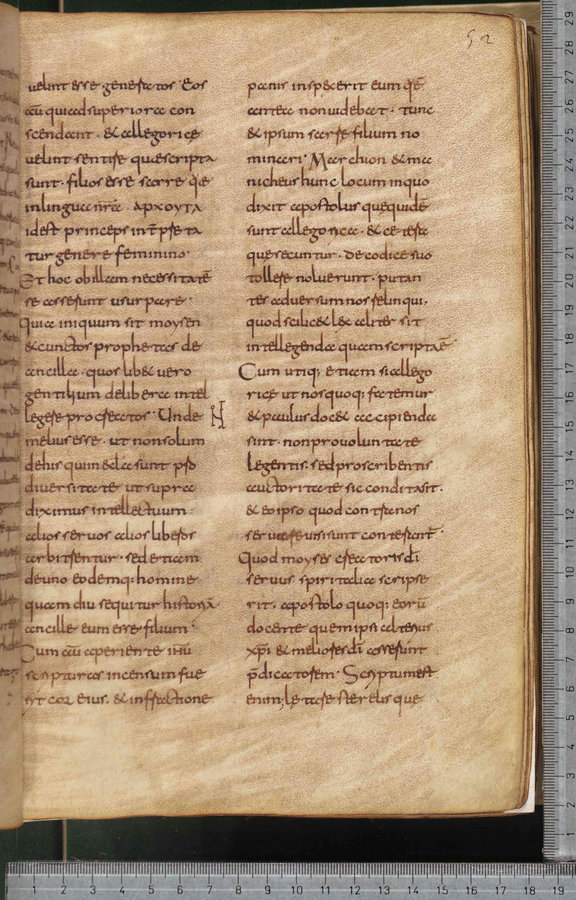 52
uelint esse generatos. Eos
cū quiadsuperiora con
scendant. & allegorice
uelint sentire quae scripta
sunt. filios esse sarre quae
in lingua nr̄a. ΑΡΧΟΥΤΑ
idest princeps inter̄pr̄ta
tur genere feminino.
Et hoc ob illam necessitatē
se asserunt usurpare.
Quia iniquum sit moysen
& cunctos prophetas de
ancilla. quos lib& uero
gentilium delibera intel
legere procreatos. Unde
melius esse. ut non solum
de his qui in ecl̄a sunt p̄so
diuersitate ut supra
diximus intellectuum
alios seruos alios liberos
arbitrentur. sed etiam
deuno eodemq; homine
quamdiu sequitur historiā
ancillae eum esse filium.
Cum aū aperiente ih̄u
scripturas incensum fue
rit cor eius. & in fractione
panis inspexerit eum quē
antea non uidebat. tunc
& ipsum sarre filium no
minari. Marchion & ma
nicheus hunc locum in quo
dixit apostolus quae quidē
sunt allegorica. & cetera
quae secuntur. de codice suo
tollere noluerunt. putan
tes aduersum nos relinqui.
quod scilic& lex aliter sit
intellegenda quam scripta ē.
Cum utiq; etiam si allego
rice ut nos quoq; fatemur
& paulus doc& accipienda
sint. non pro uoluntate
legentis. sed pro scribentis
auctoritate sic condita sit.
& eo ipso quod contra nos
seruare uisi sunt conterant̄.
Quod moyses creatoris dī
seruus spiritalia scripse
rit. apostolo quoq; eorū
docente quem ipsi alterius
xp̄i & melioris dī asserunt
p̄dicatorem. Scriptum est
enim; le